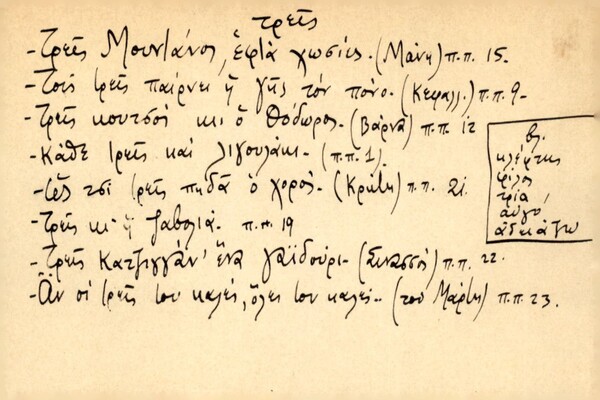 τρεῖς
- Τρεῖς Μουντάνοι, ἑφτὰ χωσίες. (Μάνη) π.π. 15.
- Τοὺς τρεῖς παίρνει ἡ γῆς τὸν πόνο. (Κεφαλλ.) π.π. 9.
- Τρεῖς κουτσοὶ κι ὁ Θόδωρος. (Βάρνα) π.π. 12
- Κάθε τρεῖς καὶ λιγουλάκι. (π.π. 1).
- τσὶ τρεῖς πηδᾶ ὁ χορός. (Κρήτη) π.π. 21.
- Τρεῖς κι ἡ π.π. 19
- Τρεῖς ἕνα γαϊδούρι. (Σινασσὸ) π.π. 22.
- Ἂν οἱ τρεῖς του καλές, ὅλες του καλές. (τοῦ Μάρτη) π.π. 23.
βλ.
κλέφτης
φίλος
τρία
αὐγό
ἀδειάζω